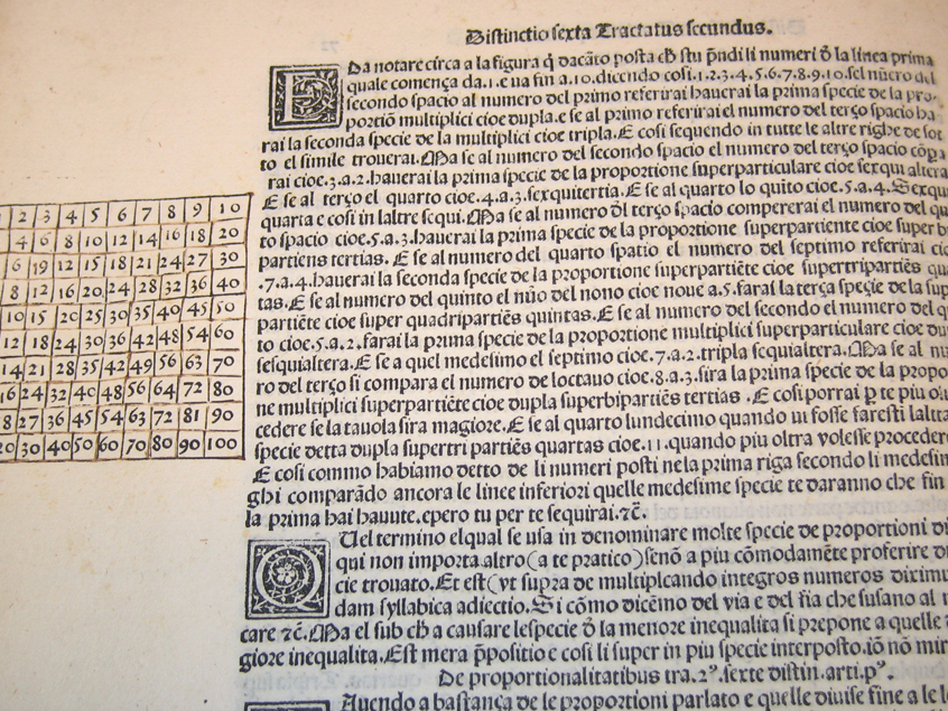 Distinctio sexta Tractatus secundus.
EDa notare circa a la figura q̃ dacãto posta ch̃ stu p̃ndi li numeri d̃ la linea prima
quale comença da.1.e ua fin a.10.dicendo cosi.1.2.3.4.5.6.7.8.9.10.sel nũero del
secondo spacio al numero del primo referirai hauerai la prima specie de la pro-
portiõ multiplici cioe dupla.e se al primo referirai el numero del terço spacio ha
rai la seconda specie de la multiplici cioe tripla.E cosi sequendo in tutte le altre righe de sot
to el simile trouerai.Ma se al numero del secondo spacio el numero del terço spacio cõp̱a
rai cioe.3.a.2.hauerai la prima specie de la proportione superparticulare cioe sexqui altera
E se al terço el quarto cioe.4.a.3.sexquitertia.E se al quarto lo quito cioe.5.a.4.Sexqu
quarta e cosi in laltre sequi.Ma se al numero dl terço spacio compererai el numero del qu
to spacio cioe.5.a.3.hauerai la prima specie de la proportione superpartiente cioe super b
partiens tertias. E se al numero del quarto spatio el numero del septimo referirai ci
.7.a.4.hauerai la seconda specie de la proportione superpartiẽte cioe supertripartiẽs qu
tas.E se al numero del quinto el nũo del nono cioe noue a.5.farai la terça specie de la sup
partiẽte cioe super quadripartiẽs quintas.E se al numero del secondo el numero del q
to cioe.5.a.2.farai la prima specie de la proportione multiplici superparticulare cioe du
sesquialtera.E se a quel medesimo el septimo cioe.7.a.2.tripla sequialtera.Ma se al nu
ro del terço si compara el numero de loctauo cioe.8.a.3.sira la prima specie de la propo
ne multiplici superpartiẽte cioe dupla superbipartiẽs tertias .E cosi porrai p̱ te piu ol
cedere se la tauola sira magiore.E se al quarto lundecimo quando ui fosse faresti laltr
specie detta dupla supertri partiẽs quartas cioe.11.quando piu oltra volesse proceder
E cosi commo habiamo detto de li numeri posti nela prima riga secondo li medesim
ghi comparãdo ancora le linee inferiori quelle medesime specie te daranno che fin
la prima hai hauute.epero tu per te sequirai.⁊c̃.
QUel termino elqual se usa in denominare molte specie de proportioni d
qui non importa altro(a te pratico)senõ a piu cõmodamẽte proferire d
cie trouato.Et est(vt supra de multiplcando integros numeros diximu
dam syllabica adiectio.Si cõmo dicẽmo del via e del fia che susano al
care ⁊c̃.Ma el sub ch̃ a causare lespecie d̃ la menore inequalita si prepone a quelle
giore inequalita.Est mera p̃positio e cosi li super in piu specie interposto.iõ nõ mi
De proportionalitatibus tra.2ꝰ.sexte distin.arti.pꝰ.
Auendo a bastança de le proportioni parlato e quelle diuise fine a le l
2 3 4 5 6 7 8 9 10
4 6 8 10 12 14 16 18 20
6 19 12 15 18 21 24 27 30
8 12 16 20 24 28 32 36 40
10 15 20 25 30 35 40 45 50
12 18 24 30 36 42 48 54 60
14 21 28 35 42 49 56 63 70
16 24 32 40 48 56 64 72 80
8 27 36 45 54 63 72 81 90
20 30 40 50 60 70 80 90 100